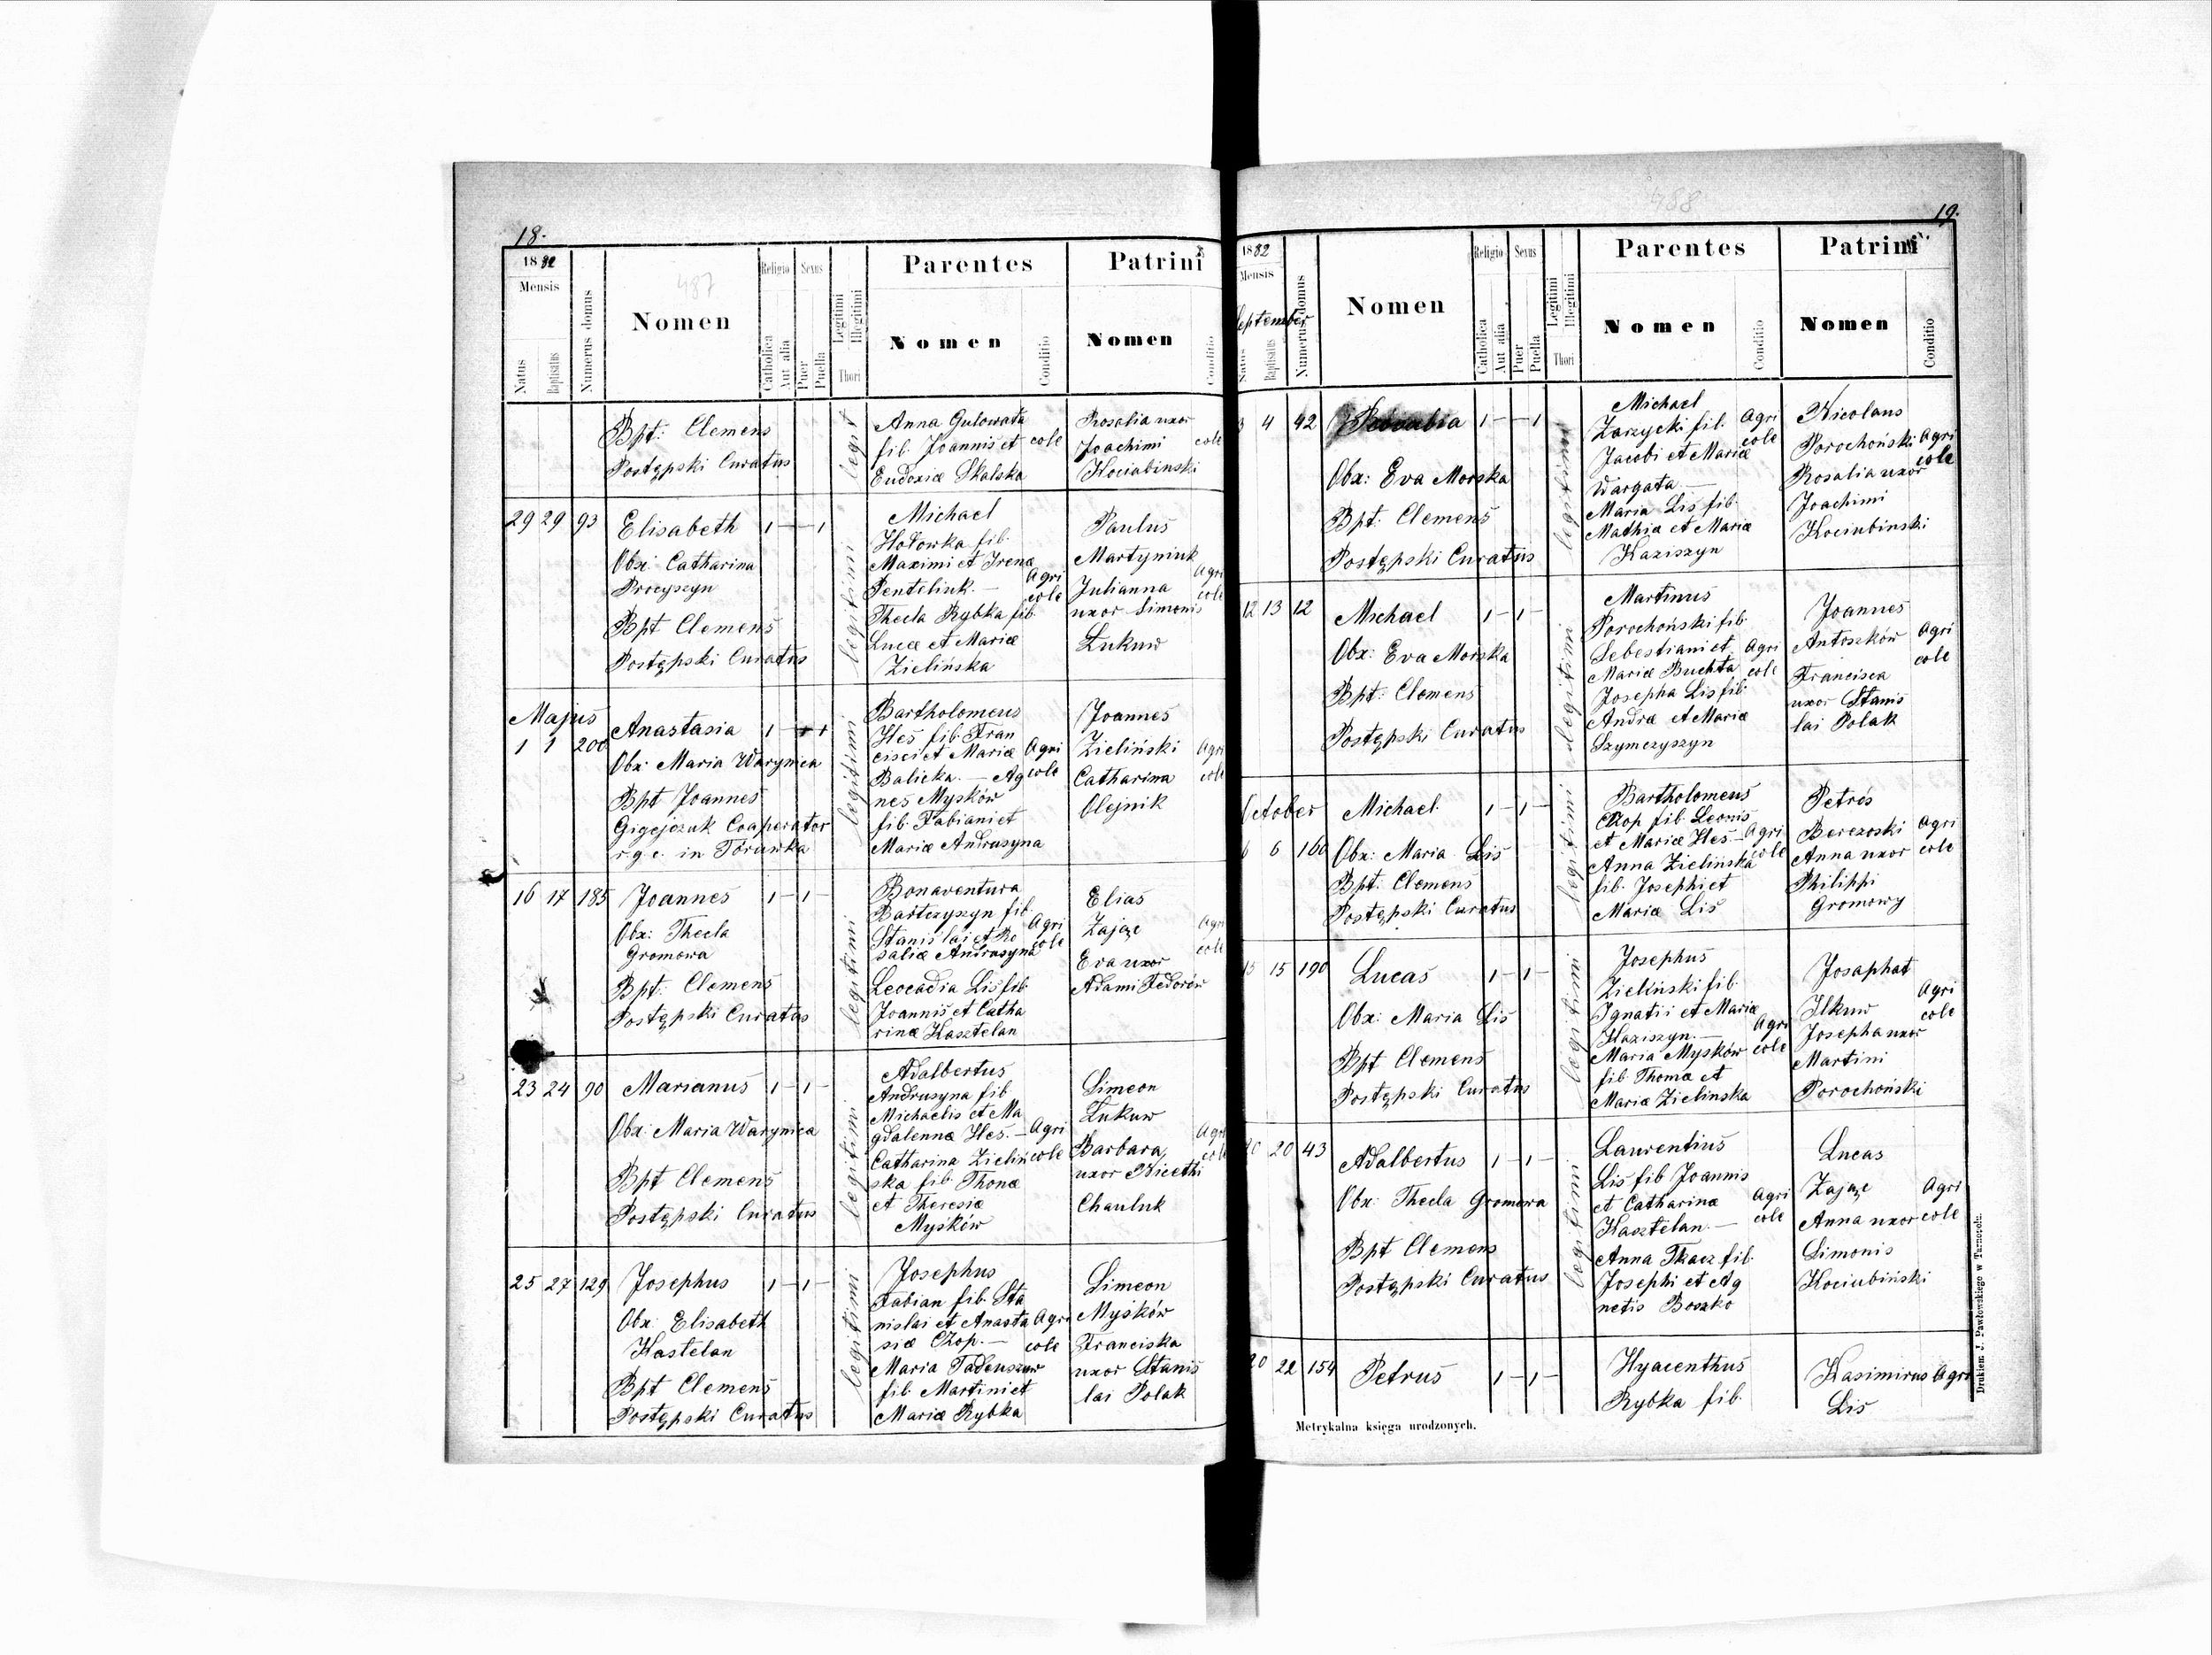 18.
1882
Mensis
Natus
Baptisatus
Numerus domus
487
Nomen
Religio
Catholica
Aut alia
Sexus
Puer
Puella
Legitimi
Illegitimi
Thori
Parentes
Nomen
Conditio
Patrini
Nomen
Conditio
Bpt: Clemens
Postępski Curatus
legit
Anna Gulowata
fil. Joannis et
Eudoxiæ Skalska
cole
Rosalia uxor
Joachimi
Kociubinski
cole
29 29 93
Elisabeth 1 — 1
Obx: Catharina
Procyszyn
Bpt Clemens
Postępski Curatus
legitimi
Michael
Hołowka fil.
Maximi et Irena
Penteliuk. —
Thecla Rybka fil.
Lucæ et Mariæ
Zielińska
Agri
cole
Paulus
Martyniuk
Julianna
uxor Simonis
Łukuw
Agri
cole
Majus
1 1 200
Anastasia 1 — 1
Obx: Maria Warynica
Bpt Joannes
Gigejczuk Cooperator
r.g.c. in Torunka
legitimi
Bartholomeus
Hes fil. Fran
cisci et Mariæ
Balicka. — Ag
nes Myśków
fil. Fabiani et
Mariæ Andrusyna
Agri
cole
Joannes
Zieliński
Catharina
Olejnik
Agri
cole
16 17 185
Joannes 1 — 1 —
Obx: Thecla
Gromowa
Bpt: Clemens
Postępski Curatus
legitimi
Bonaventura
Bartczyszyn fil.
Stanislai et Ro
saliæ Andrusyna
Leocadia Lis fil.
Joannis et Catha
rinæ Kasztelan
Agri
cole
Elias
Zając
Eva uxor
Adami Fedorów
Agri
cole
23 24 90
Marianus 1 — 1 —
Obx: Maria Warynica
Bpt Clemens
Postępski Curatus
legitimi
Adalbertus
Andrusyna fil
Michaelis et Ma
gdalennæ Hes. —
Catharina Zieliń
ska fil. Thomæ
et Theresiæ
Myśków
Agri
cole
Simeon
Łukuw
Barbara
uxor Nicethi
Chauluk
Agri
cole
25 27 129
Josephus 1 — 1 —
Obx: Elisabeth
Kastelan
Bpt Clemens
Postępski Curatus
legitimi
Josephus
Fabian fil. Sta
nislai et Anasta
siæ Czop. —
Maria Tadeuszuw
fil. Martini et
Mariæ Rybka
Agri
cole
Simeon
Myśków
Franciska
uxor Stanis
lai Polak
488
19.
1882
Mensis
September
Natus
Baptisatus
Numerus domus
Nomen
Religio
Catholica
Aut alia
Sexus
Puer
Puella
Legitimi
Illegitimi
Thori
Parentes
Nomen
Conditio
Patrini
Nomen
Conditio
3 4 92
1 — 1
Obx: Eva Morska
Bpt: Clemens
Postępski Curatus
legitimi
Michael
Zarzycki fil.
Jacobi et Mariæ
Wargata —
Maria Lis fil.
Mathiæ et Mariæ
Kaziszyn
Agri
cole
Nicolaus
Porochoński
Rosalia uxor
Joachimi
Kociubinski
Agri
cole
12 13 12
Michael 1 — 1 —
Obx: Eva Morska
Bpt: Clemens
Postępski Curatus
legitimi
Martinus
Porochoński fil.
Sebestiani et
Mariæ Buchta
Josepha Lis fil.
Andræ et Mariæ
Szymczyszyn
Agri
cole
Joannes
Antoszków
Francisca
uxor Stanis
lai Polak
Agri
cole
October
6 6 160
Michael 1 — 1 —
Obx: Maria Lis
Bpt: Clemens
Postępski Curatus
legitimi
Bartholomeus
Czop fil. Leonis
et Mariæ Hes —
Anna Zielińska
fil. Josephi et
Mariæ Lis
Agri
cole
Petrós
Berezoski
Anna uxor
Philippi
Gromowy
Agri
cole
15 15 190
Lucas 1 — 1 —
Obx: Maria Lis
Bpt Clemens
Postępski Curatus
legitimi
Josephus
Zieliński fil.
Ignatii et Mariæ
Kaziszyn. —
Maria Myśków
fil. Thomæ et
Mariæ Zielinska
Agri
cole
Josaphat
Ilkuw
Josepha uxor
Martini
Porochoński
Agri
cole
20 20 43
Adalbertus 1 — 1 —
Obx: Thecla Gromowa
Bpt Clemens
Postępski Curatus
legitimi
Laurentius
Lis fil Joannis
et Catharinæ
Kasztelan. —
Anna Tkacz fil.
Josephi et Ag
netis Boszko
Agri
cole
Lucas
Zając
Anna uxor
Simonis
Kociubiński
Agri
cole
20 22 154
Petrus 1 — 1 —
Hyacenthus
Rybka fil.
Kasimirus
Lis
Agri
Metrykalna księga urodzonych.
Drukiem J. Pawłowskiego w Tarnopolu.